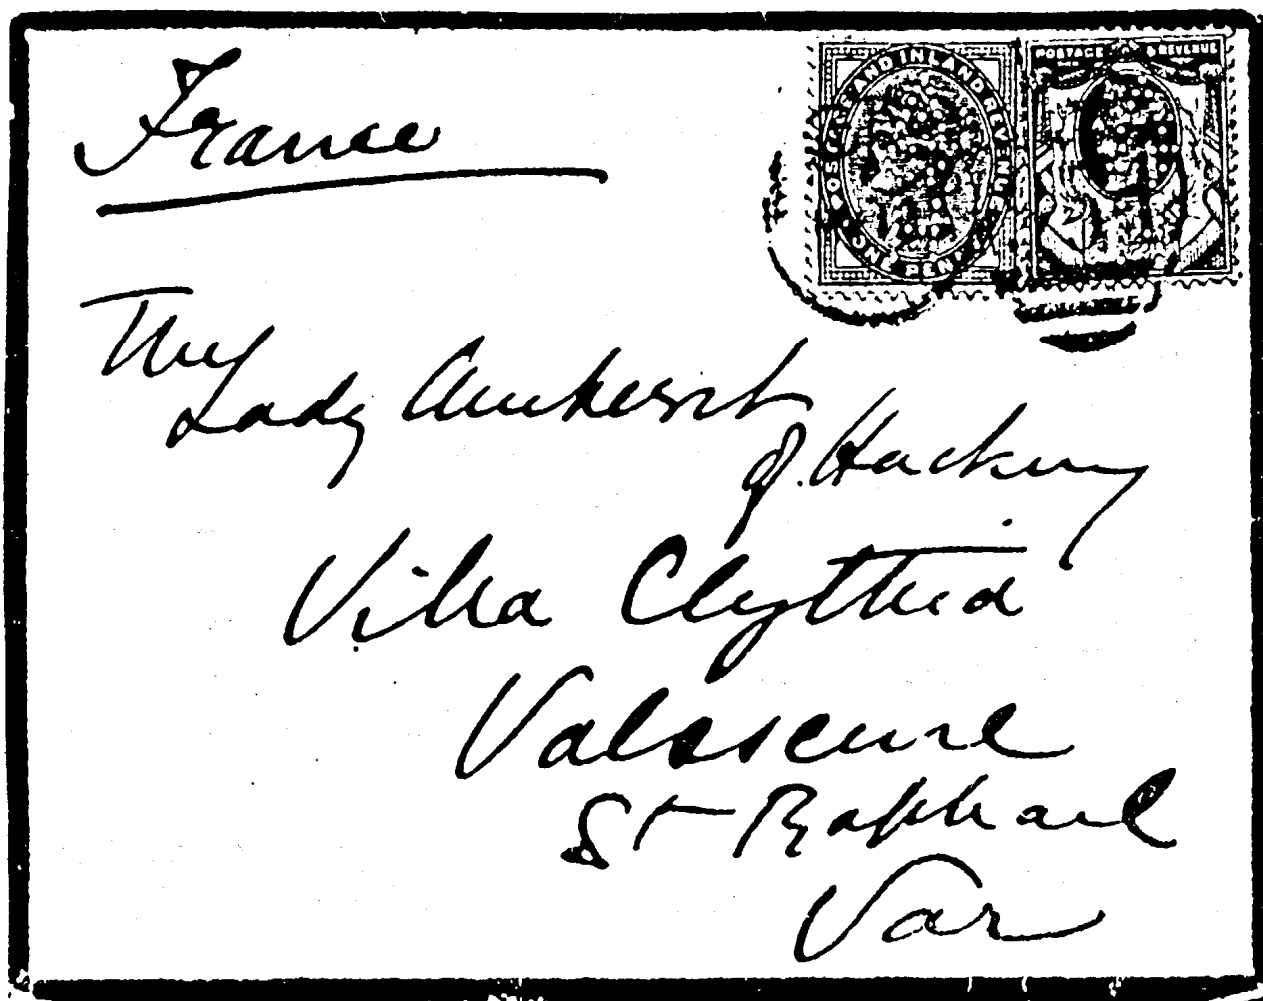 France
POSTAGE AND INLAND REVENUE
ONE PENNY
POSTAGE & REVENUE
The
Lady Amherst
of Hackney
Villa Clythia
Valescure
St Raphael
Var